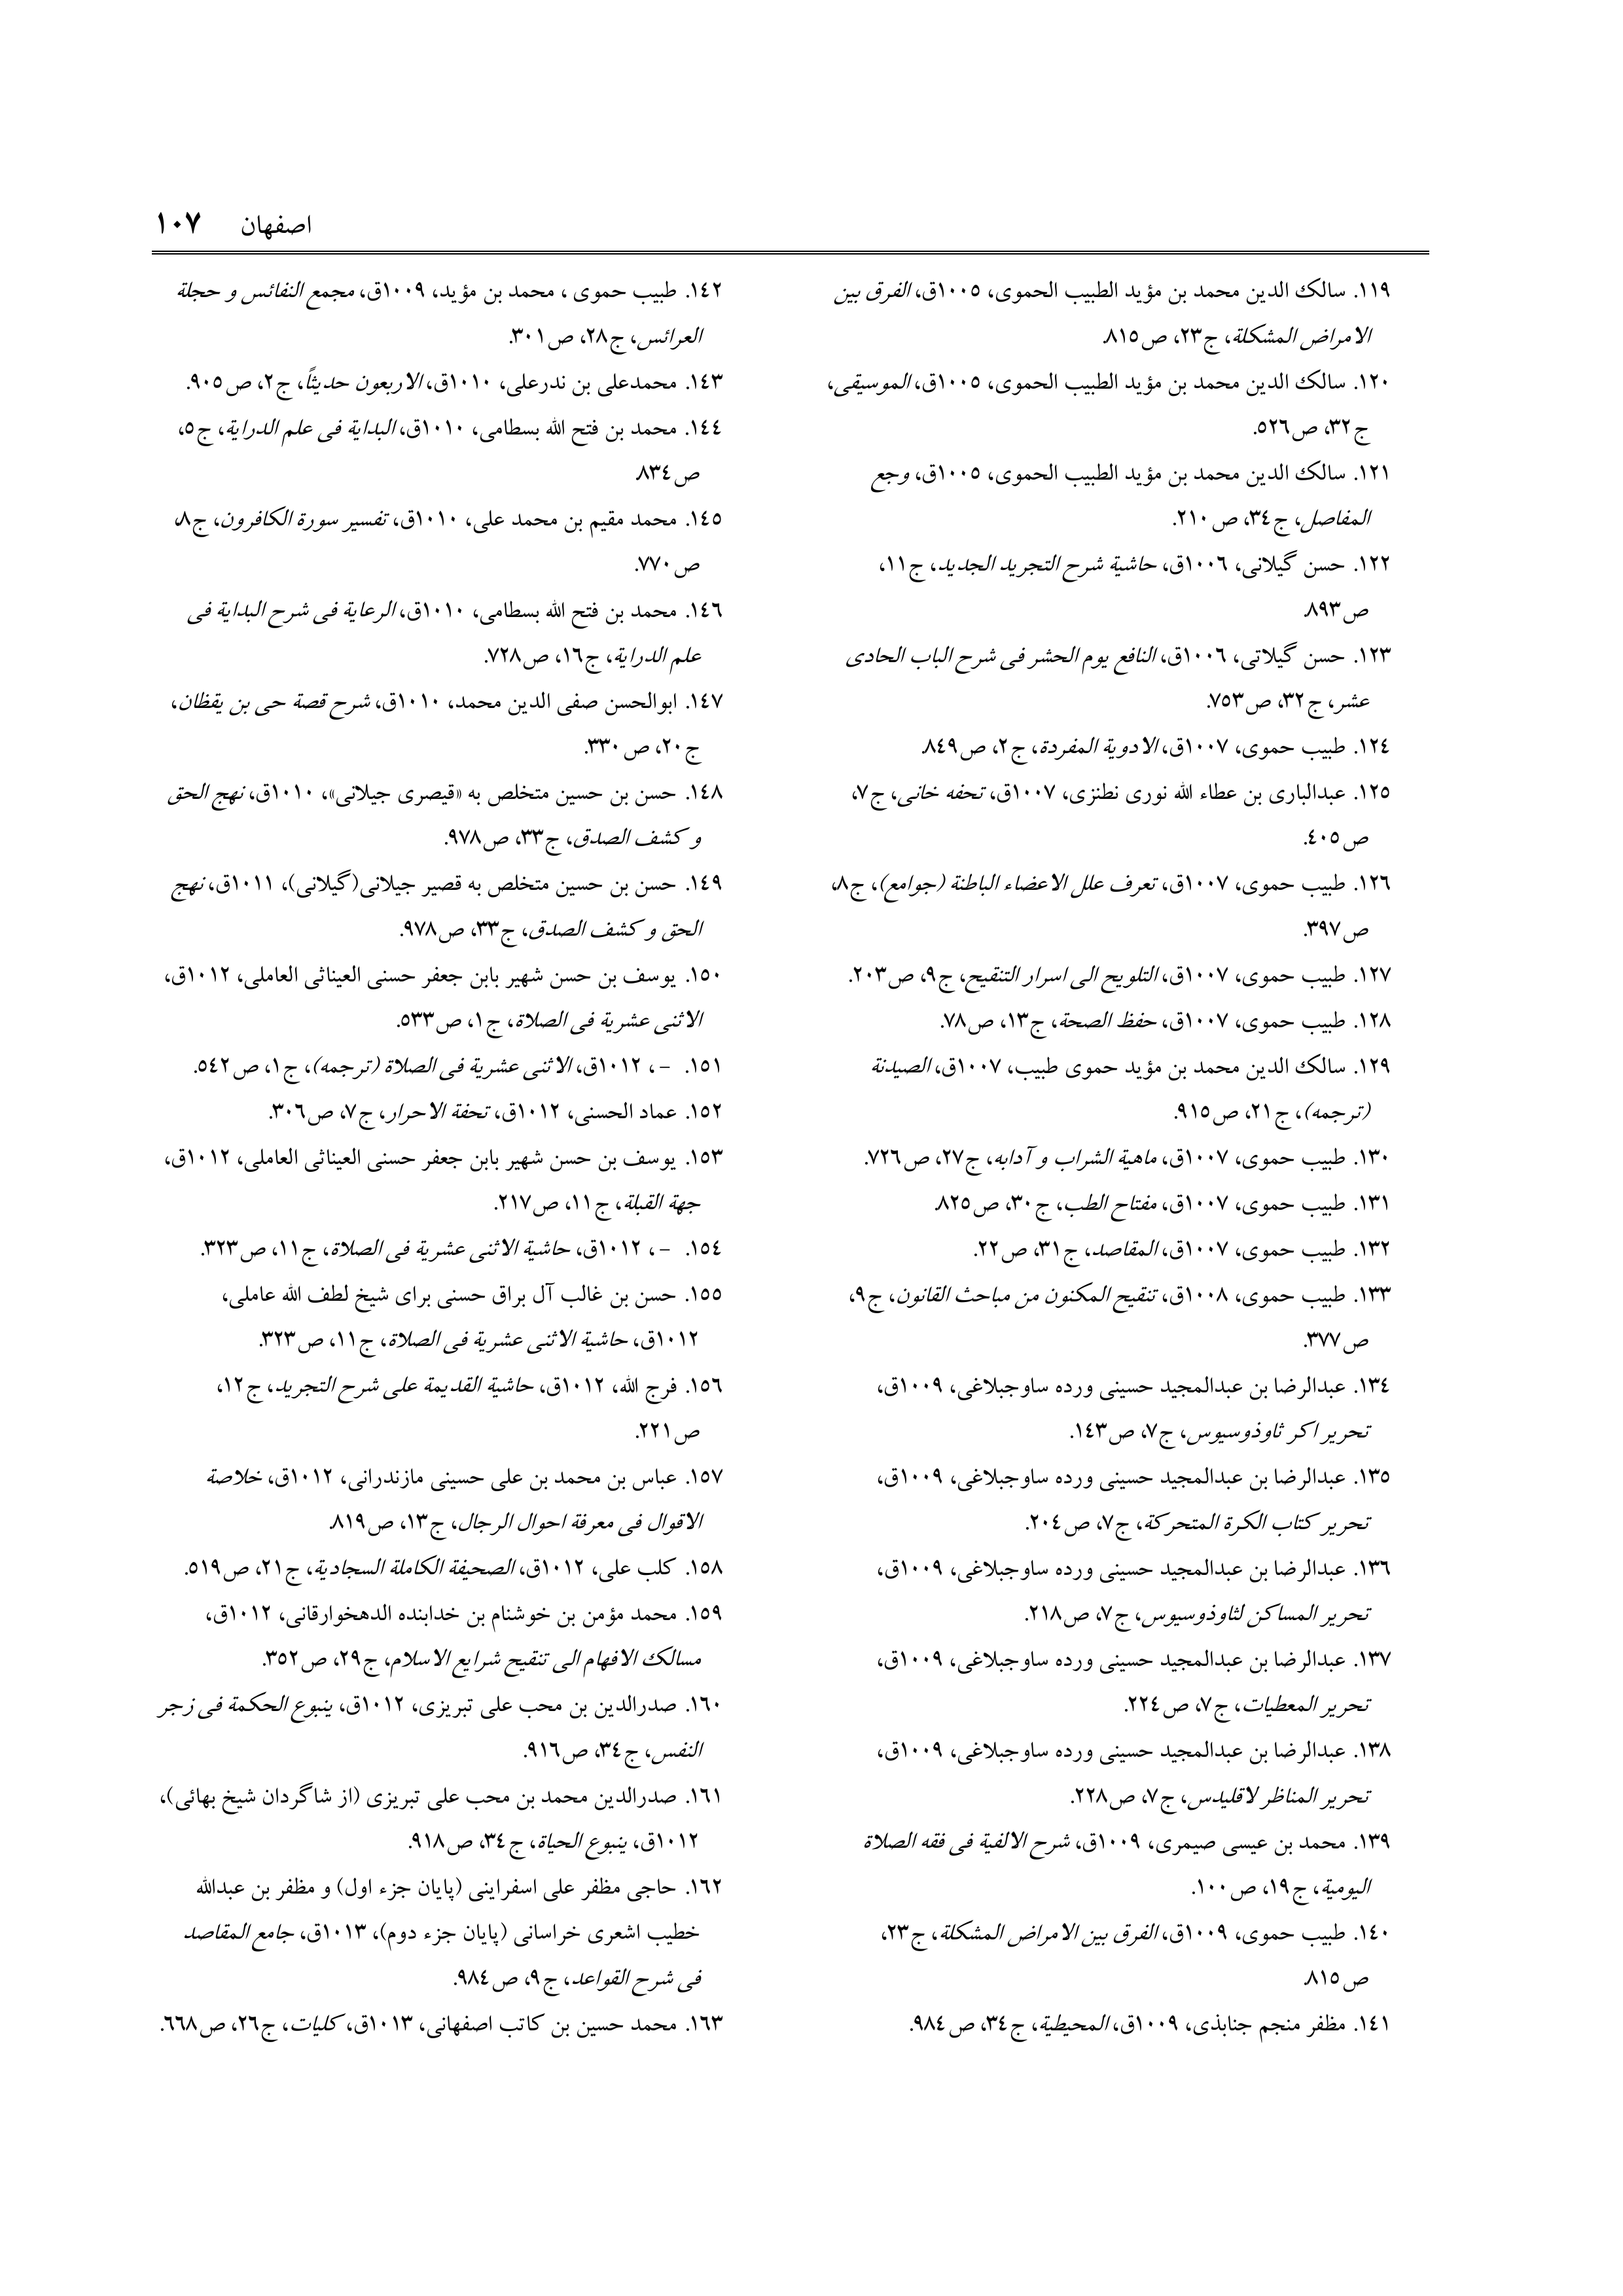 اصفهان ١٠٧
١١٩. سالک الدین محمد بن مؤید الطبیب الحموی، ١٠٠٥ق، الفرق بین
الامراض المشکلة، ج٢٣، ص٨١٥
١٢٠. سالک الدین محمد بن مؤید الطبیب الحموی، ١٠٠٥ق، الموسیقی،
ج٣٢، ص٥٢٦.
١٢١. سالک الدین محمد بن مؤید الطبیب الحموی، ١٠٠٥ق، وجع
المفاصل، ج٣٤، ص٢١٠.
١٢٢. حسن گیلانی، ١٠٠٦ق، حاشیة شرح التجرید الجدید، ج١١،
ص٨٩٣
١٢٣. حسن گیلاتی، ١٠٠٦ق، النافع یوم الحشر فی شرح الباب الحادی
عشر، ج٣٢، ص٧٥٣.
١٢٤. طبیب حموی، ١٠٠٧ق، الادویة المفردة، ج٢، ص٨٤٩
١٢٥. عبدالباری بن عطاء الله نوری نطنزی، ١٠٠٧ق، تحفه خانی، ج٧،
ص٤٠٥.
١٢٦. طبیب حموی، ١٠٠٧ق، تعرف علل الاعضاء الباطنة (جوامع)، ج٨،
ص٣٩٧.
١٢٧. طبیب حموی، ١٠٠٧ق، التلویح الی اسرار التنقیح، ج٩، ص٢٠٣.
١٢٨. طبیب حموی، ١٠٠٧ق، حفظ الصحة، ج١٣، ص٧٨.
١٢٩. سالک الدین محمد بن مؤید حموی طبیب، ١٠٠٧ق، الصیدنة
(ترجمه)، ج٢١، ص٩١٥.
١٣٠. طبیب حموی، ١٠٠٧ق، ماهیة الشراب و آدابه، ج٢٧، ص٧٢٦.
١٣١. طبیب حموی، ١٠٠٧ق، مفتاح الطب، ج٣٠، ص٨٢٥
١٣٢. طبیب حموی، ١٠٠٧ق، المقاصد، ج٣١، ص٢٢.
١٣٣. طبیب حموی، ١٠٠٨ق، تنقیح المکنون من مباحث القانون، ج٩،
ص٣٧٧.
١٣٤. عبدالرضا بن عبدالمجید حسینی ورده ساوجبلاغی، ١٠٠٩ق،
تحریر اکر ثاوذوسیوس، ج٧، ص١٤٣.
١٣٥. عبدالرضا بن عبدالمجید حسینی ورده ساوجبلاغی، ١٠٠٩ق،
تحریر کتاب الکرة المتحرکة، ج٧، ص٢٠٤.
١٣٦. عبدالرضا بن عبدالمجید حسینی ورده ساوجبلاغی، ١٠٠٩ق،
تحریر المساکن لثاوذوسیوس، ج٧، ص٢١٨.
١٣٧. عبدالرضا بن عبدالمجید حسینی ورده ساوجبلاغی، ١٠٠٩ق،
تحریر المعطیات، ج٧، ص٢٢٤.
١٣٨. عبدالرضا بن عبدالمجید حسینی ورده ساوجبلاغی، ١٠٠٩ق،
تحریر المناظر لاقلیدس، ج٧، ص٢٢٨.
١٣٩. محمد بن عیسی صیمری، ١٠٠٩ق، شرح الالفیة فی فقه الصلاة
الیومیة، ج١٩، ص١٠٠.
١٤٠. طبیب حموی، ١٠٠٩ق، الفرق بین الامراض المشکلة، ج٢٣،
ص٨١٥
١٤١. مظفر منجم جنابذی، ١٠٠٩ق، المحیطیة، ج٣٤، ص٩٨٤.
١٤٢. طبیب حموی ، محمد بن مؤید، ١٠٠٩ق، مجمع النفائس و حجلة
العرائس، ج٢٨، ص٣٠١.
١٤٣. محمدعلی بن ندرعلی، ١٠١٠ق، الاربعون حدیثاً، ج٢، ص٩٠٥.
١٤٤. محمد بن فتح الله بسطامی، ١٠١٠ق، البدایة فی علم الدرایة، ج٥،
ص٨٣٤
١٤٥. محمد مقیم بن محمد علی، ١٠١٠ق، تفسیر سورة الکافرون، ج٨،
ص٧٧٠.
١٤٦. محمد بن فتح الله بسطامی، ١٠١٠ق، الرعایة فی شرح البدایة فی
علم الدرایة، ج١٦، ص٧٢٨.
١٤٧. ابوالحسن صفی الدین محمد، ١٠١٠ق، شرح قصة حی بن یقظان،
ج٢٠، ص٣٣٠.
١٤٨. حسن بن حسین متخلص به «قیصری جیلانی»، ١٠١٠ق، نهج الحق
و کشف الصدق، ج٣٣، ص٩٧٨.
١٤٩. حسن بن حسین متخلص به قصیر جیلانی(گیلانی)، ١٠١١ق، نهج
الحق و کشف الصدق، ج٣٣، ص٩٧٨.
١٥٠. یوسف بن حسن شهیر بابن جعفر حسنی العیناثی العاملی، ١٠١٢ق،
الاثنی عشریة فی الصلاة، ج١، ص٥٣٣.
١٥١. -، ١٠١٢ق، الاثنی عشریة فی الصلاة (ترجمه)، ج١، ص٥٤٢.
١٥٢. عماد الحسنی، ١٠١٢ق، تحفة الاحرار، ج٧، ص٣٠٦.
١٥٣. یوسف بن حسن شهیر بابن جعفر حسنی العیناثی العاملی، ١٠١٢ق،
جهة القبلة، ج١١، ص٢١٧.
١٥٤. -، ١٠١٢ق، حاشیة الاثنی عشریة فی الصلاة، ج١١، ص٣٢٣.
١٥٥. حسن بن غالب آل براق حسنی برای شیخ لطف الله عاملی،
١٠١٢ق، حاشیة الاثنی عشریة فی الصلاة، ج١١، ص٣٢٣.
١٥٦. فرج الله، ١٠١٢ق، حاشیة القدیمة علی شرح التجرید، ج١٢،
ص٢٢١.
١٥٧. عباس بن محمد بن علی حسینی مازندرانی، ١٠١٢ق، خلاصة
الاقوال فی معرفة احوال الرجال، ج١٣، ص٨١٩
١٥٨. کلب علی، ١٠١٢ق، الصحیفة الکاملة السجادیة، ج٢١، ص٥١٩.
١٥٩. محمد مؤمن بن خوشنام بن خدابنده الدهخوارقانی، ١٠١٢ق،
مسالک الافهام الی تنقیح شرایع الاسلام، ج٢٩، ص٣٥٢.
١٦٠. صدرالدین بن محب علی تبریزی، ١٠١٢ق، ینبوع الحکمة فی زجر
النفس، ج٣٤، ص٩١٦.
١٦١. صدرالدین محمد بن محب علی تبریزی (از شاگردان شیخ بهائی)،
١٠١٢ق، ینبوع الحیاة، ج٣٤، ص٩١٨.
١٦٢. حاجی مظفر علی اسفراینی (پایان جزء اول) و مظفر بن عبدالله
خطیب اشعری خراسانی (پایان جزء دوم)، ١٠١٣ق، جامع المقاصد
فی شرح القواعد، ج٩، ص٩٨٤.
١٦٣. محمد حسین بن کاتب اصفهانی، ١٠١٣ق، کلیات، ج٢٦، ص٦٦٨.